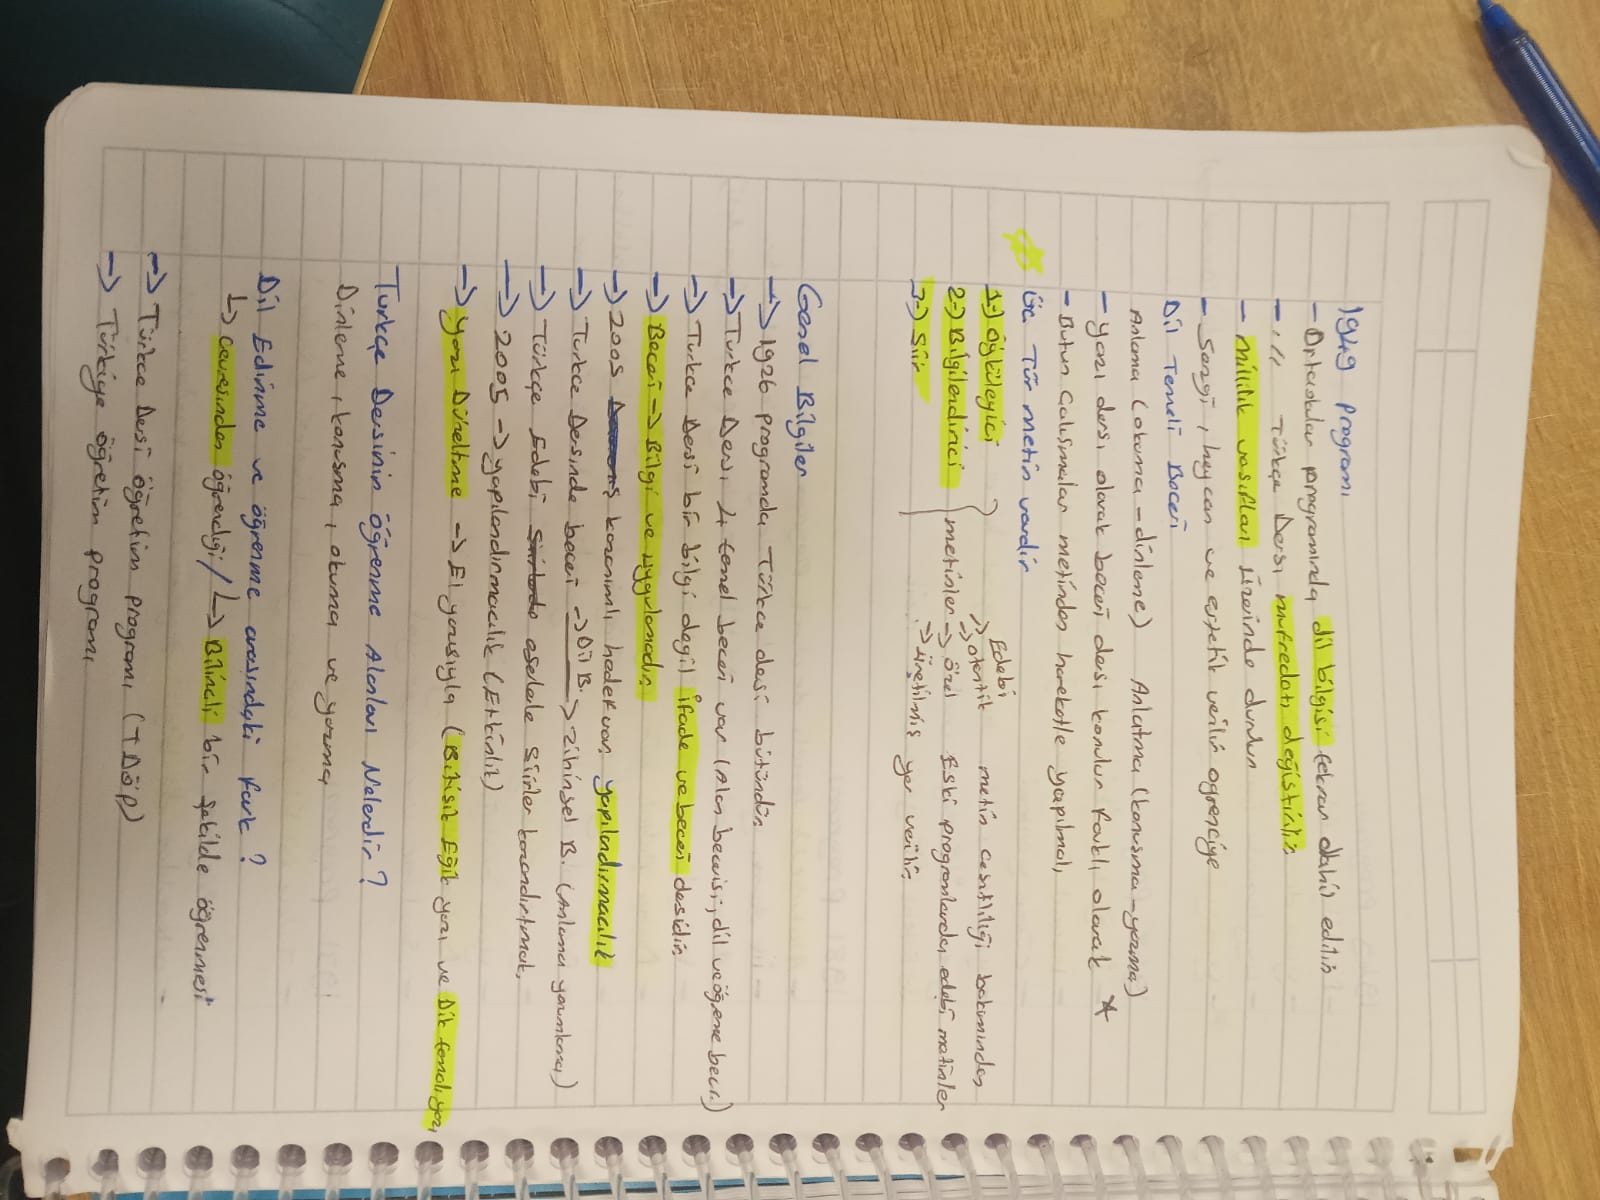 1949 programı
- Ortaokullar programında dil bilgisi tekrar dahil edilir
- '' '' Türkçe Dersi mufredatı değiştirilir
- millilik vasıfları üzerinde durulur
- Sevgi, heycan ve estetik verilir ögrenciye
Dil Temeli Beceri
Anlama (okuma-dinleme) Anlatma (konusma-yazma)
- yazı dersi olarak beceri dersi konulur farklı olarak *
- Butun Calısmalar metinden hareketle yapılmalı,
Üç Tür metin vardır
1-) Öyküleyici
2-) Bilgilendirici
3-) Siir
metinler
Edebi
-> otentik
-> özel
-> üretilmiş
metin cesitliliği bakımından
Eski programlarda, edebi metinler
yer verilir.
Genel Bilgiler
-> 1926 programda Türkce dersi bütündür
-> Turkce Dersi 4 temel beceri var (Alan becerisi, dil ve öğrene beci.)
-> Turkce Dersi bir bilgi degil ifade ve beceri dersidir
-> Beceri -> Bilgi ve uygulamadır
-> 2005 kazanımlı hedef var, yapılandırmacılık
-> Turkce Dersinde beceri -> Dil B. -> Zihinsel B. (Anlama yorumlama)
-> Türkçe Edebi eserlerle Siirler kazandırtmak,
-> 2005 -> yapılandırmacılık (Etkinlik)
-> yazı Düzeltme -> El yazısıyla (Bitisik Eğik yazı ve Dik temel yazı
Turkce Dersinin öğrenme Alanları Nelerdir?
Dinleme, konusma, okuma ve yazma
Dil Edinme ve öğrenme arasındaki fark?
↳ Cevresinden öğrendiği / ↳ Bilincli bir şekilde öğrenmesi
-> Türkce Dersi Öğretim programı (TDÖP)
-> Türkiye öğretim programı